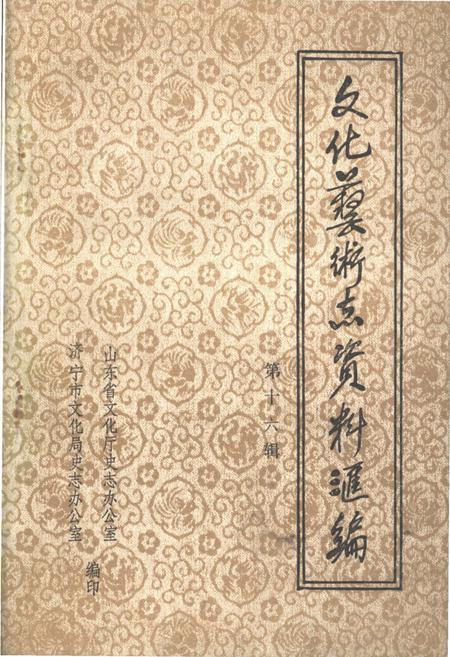 文化藝術志資料滙編
第十六辑
山东省文化厅史志办公室
济宁市文化局史志办公室
编印